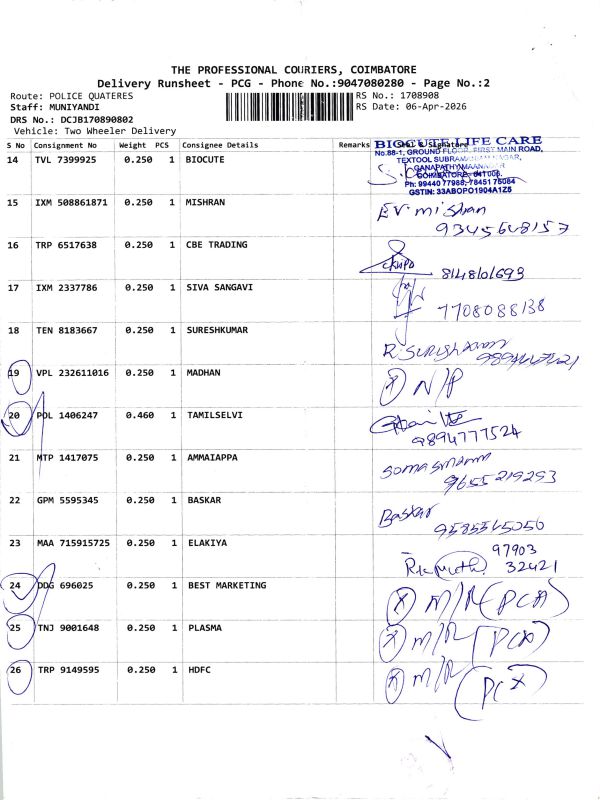 THE PROFESSIONAL COURIERS, COIMBATORE
Delivery Runsheet - PCG - Phone No.:9047080280 - Page No.:2
Route: POLICE QUATERES RS No.: 1708908
Staff: MUNIYANDI RS Date: 06-Apr-2026
DRS No.: DCJB170890802
Vehicle: Two Wheeler Delivery
S No Consignment No Weight PCS Consignee Details Remarks
BIOCUTE LIFE CARE
No.88-1, GROUND FLOOR, FIRST MAIN ROAD,
14 TVL 7399925 0.250 1 BIOCUTE
TEXTOOL SUBRAMANIAM NAGAR,
GANAPATHYMAANAGAR
COIMBATORE- 641006.
Ph: 99440 77988, 78451 76084
GSTIN: 33ABOPO1904A1Z5
15 IXM 508861871 0.250 1 MISHRAN
EV. mishan
9345648157
16 TRP 6517638 0.250 1 CBE TRADING
8148101693
17 IXM 2337786 0.250 1 SIVA SANGAVI
7708088138
18 TEN 8183667 0.250 1 SURESHKUMAR
19 VPL 232611016 0.250 1 MADHAN X N/P
20 POL 1406247 0.460 1 TAMILSELVI
9894777524
21 MTP 1417075 0.250 1 AMMAIAPPA
9655219293
22 GPM 5595345 0.250 1 BASKAR
Baskar
23 MAA 715915725 0.250 1 ELAKIYA
97903
32421
24 DDG 696025 0.250 1 BEST MARKETING X M/R (PCX)
25 TNJ 9001648 0.250 1 PLASMA X M/R (PCX)
26 TRP 9149595 0.250 1 HDFC X M/R
(PCX)